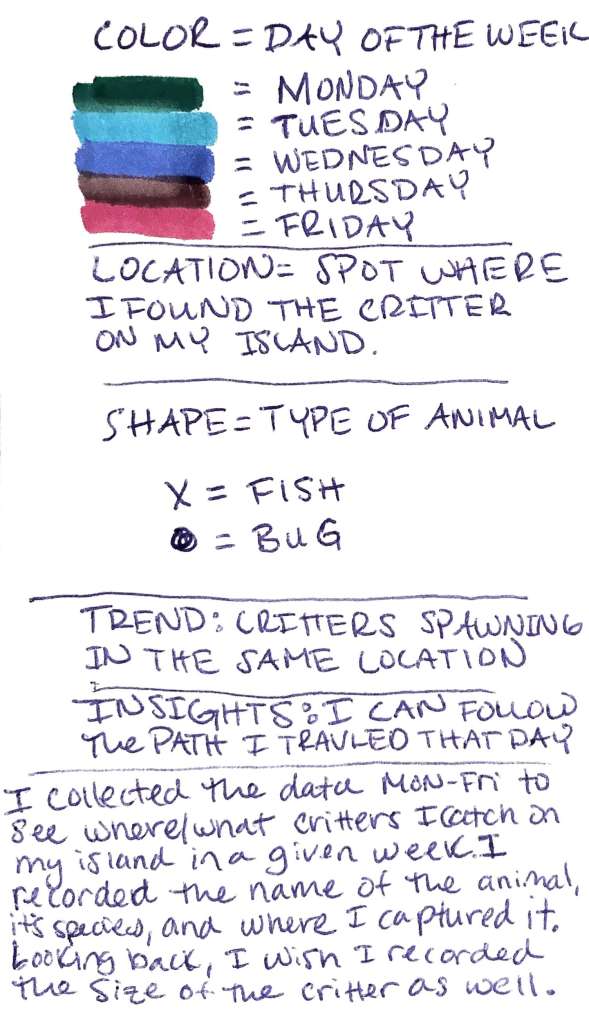 COLOR = DAY OF THE WEEK
= MONDAY
= TUESDAY
= WEDNESDAY
= THURSDAY
= FRIDAY
LOCATION = SPOT WHERE
I FOUND THE CRITTER
ON MY ISLAND.
SHAPE = TYPE OF ANIMAL
X = FISH
● = BUG
TREND: CRITTERS SPAWNING
IN THE SAME LOCATION
INSIGHTS: I CAN FOLLOW
THE PATH I TRAVLED THAT DAY
I collected the data MON-Fri to
see where/what critters I catch on
my island in a given week. I
recorded the name of the animal,
it's species, and where I captured it.
Looking back, I wish I recorded
the size of the critter as well.